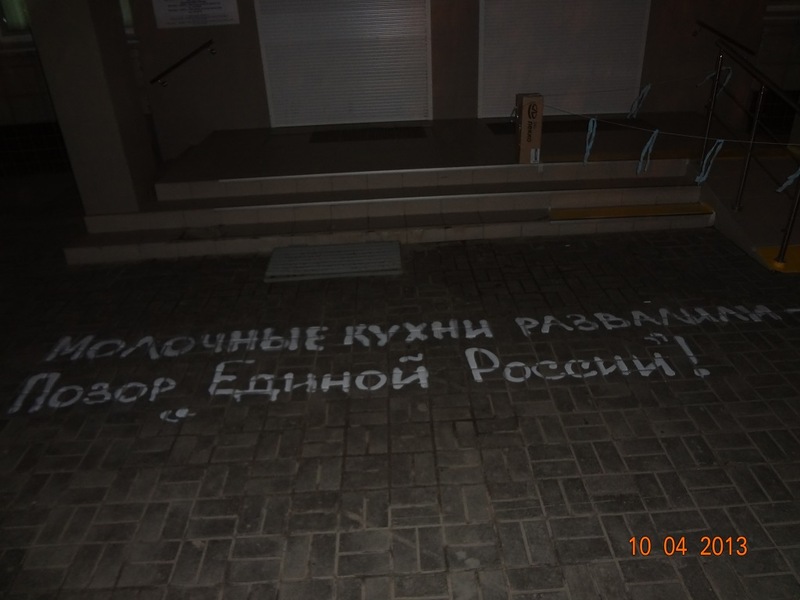 Молочные кухни развалили -
Позор "Единой России"!
10 04 2013